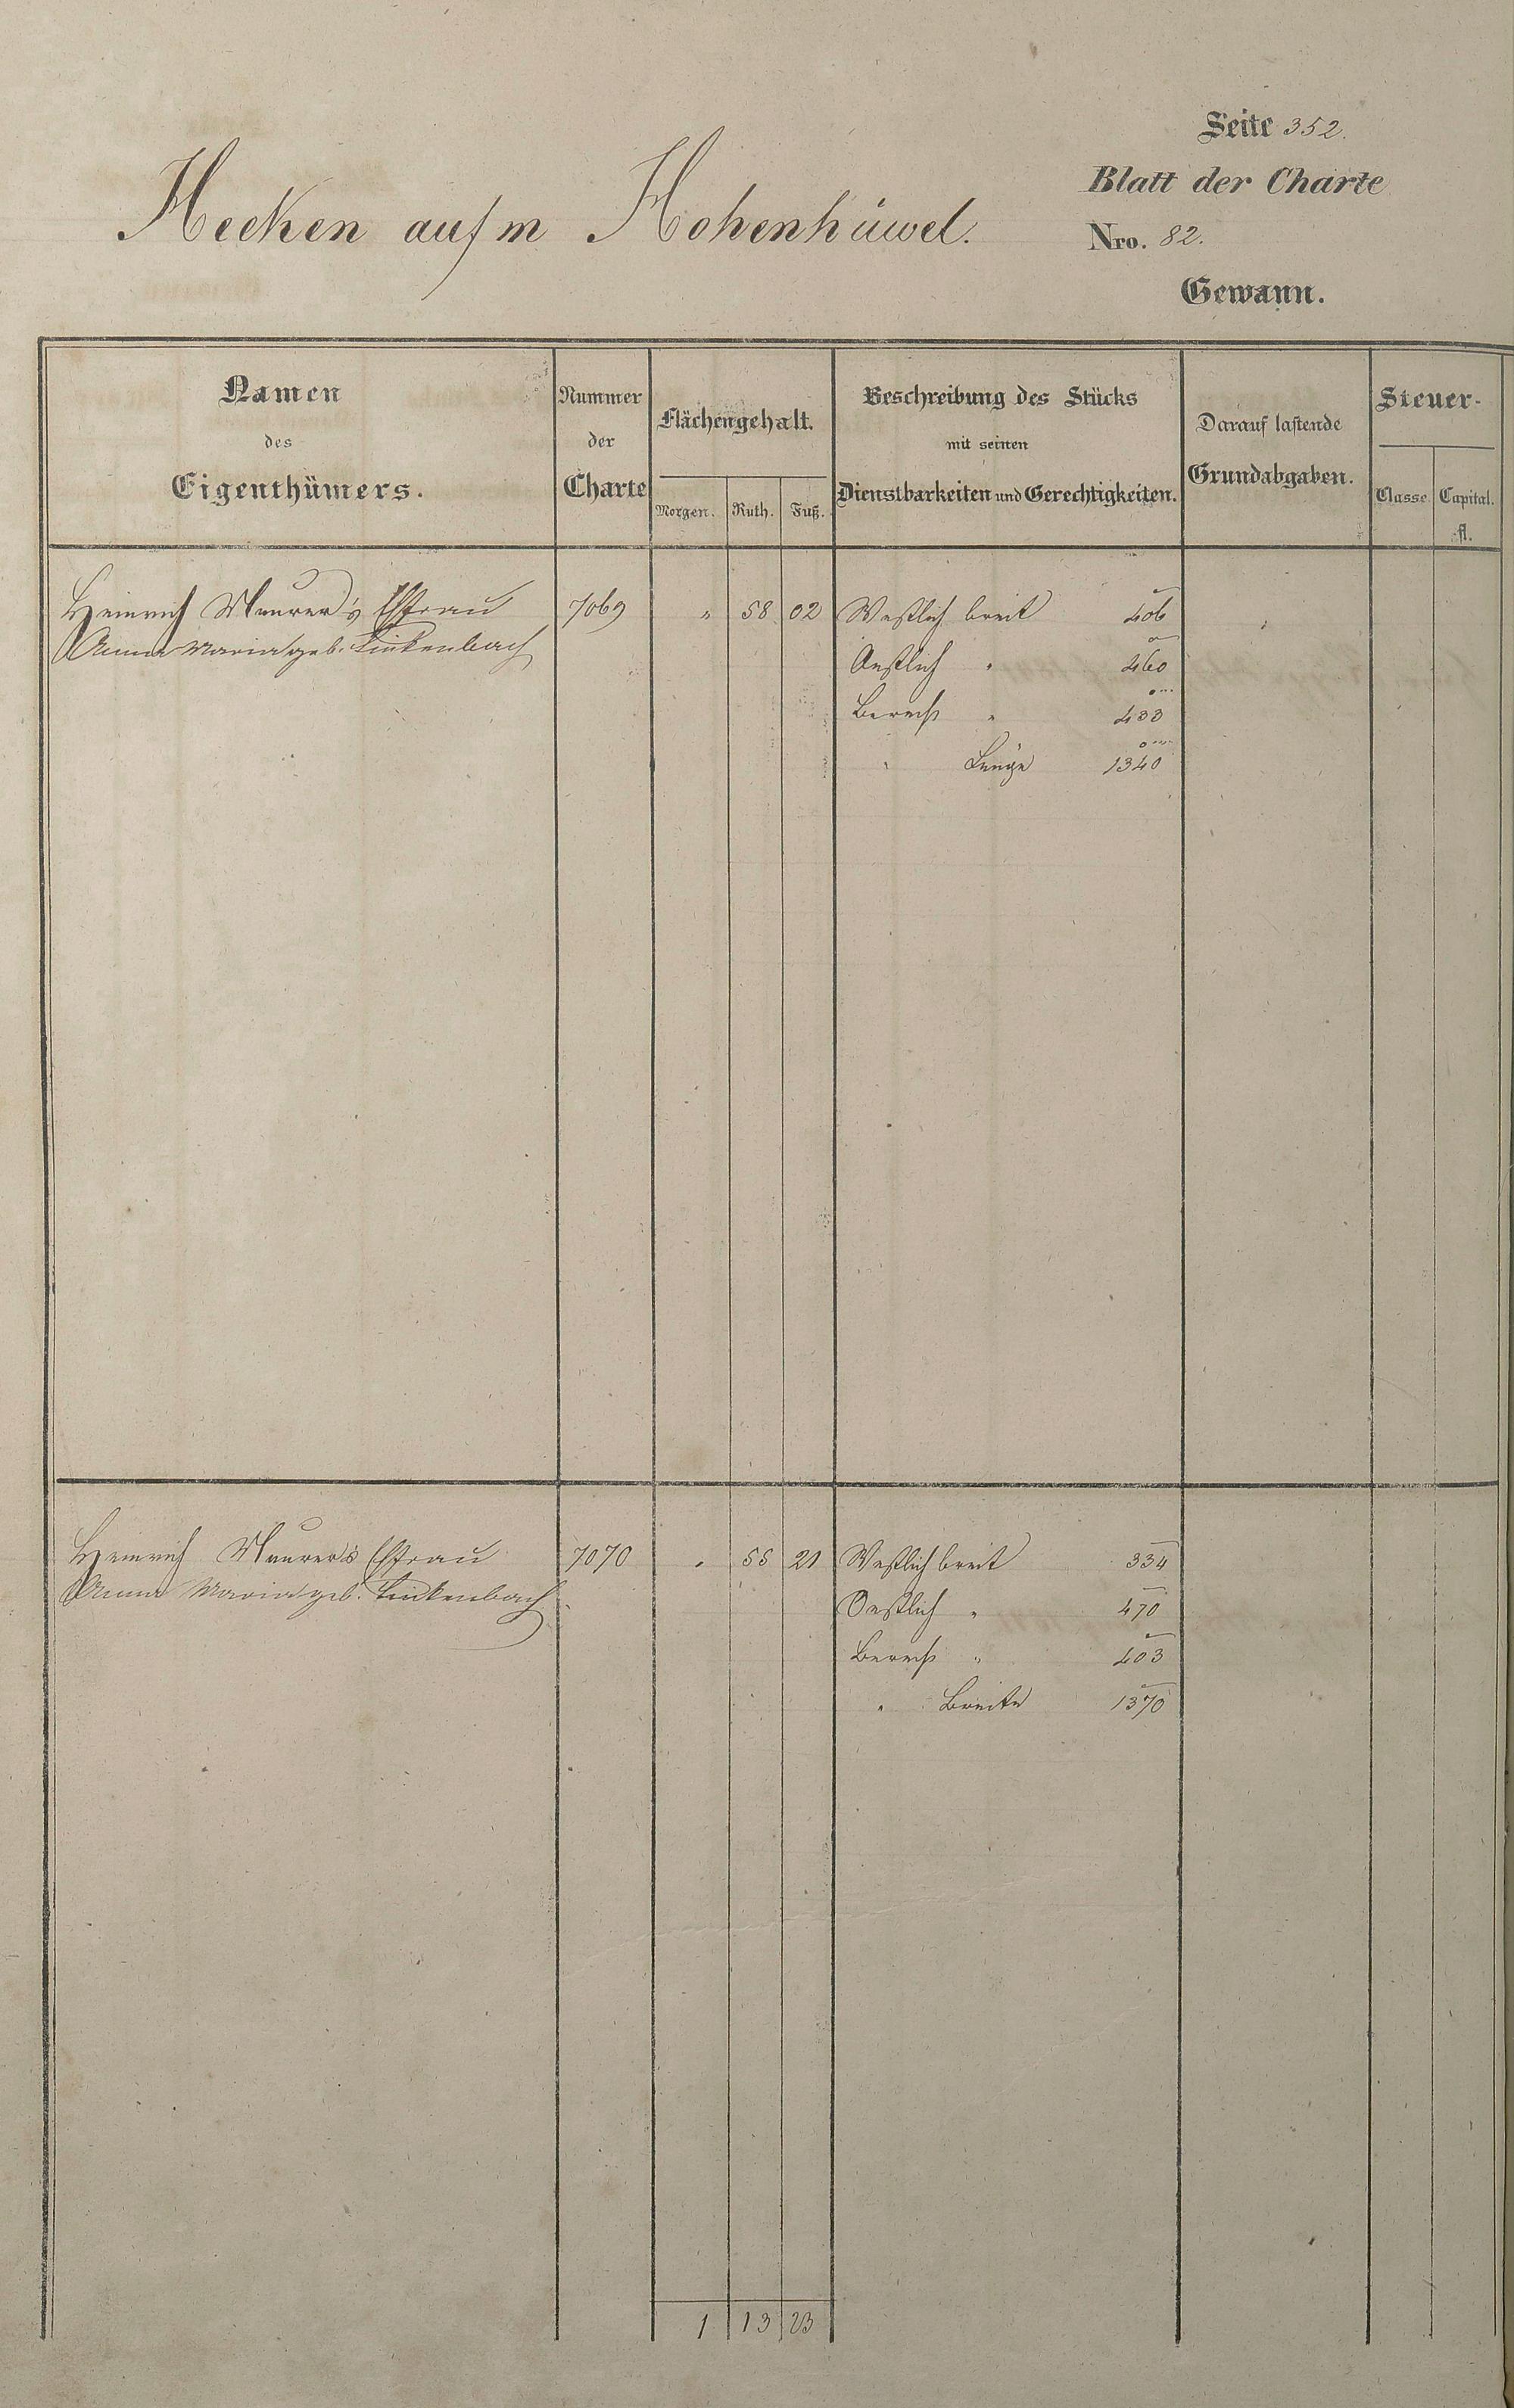 Seite 352.
Blatt der Charte
Hecken auf m Hohenhüwel.
Nro. 82.
Gewann.
Namen des Eigenthümers.
Nummer der Charte
Flächengehalt.
Morgen. Ruth. Fuß.
Beschreibung des Stücks mit seinen Dienstbarkeiten und Gerechtigkeiten.
Darauf lastende Grundabgaben.
Steuer-
Classe. Capital.
fl.
Heinrich Maurer's Ehfrau 7069 " 58 02 Westlich breit 406
Anna Maria geb. Linkenbach Oestlich " 460
Berechs " 433
" Länge 1340
Heinrich Maurer's Ehfrau 7070 " 55 21 Westlich breit 334
Anna Maria geb. Linkenbach Oestlich " 470
Berechs " 403
" Breite 1370
1 13 23